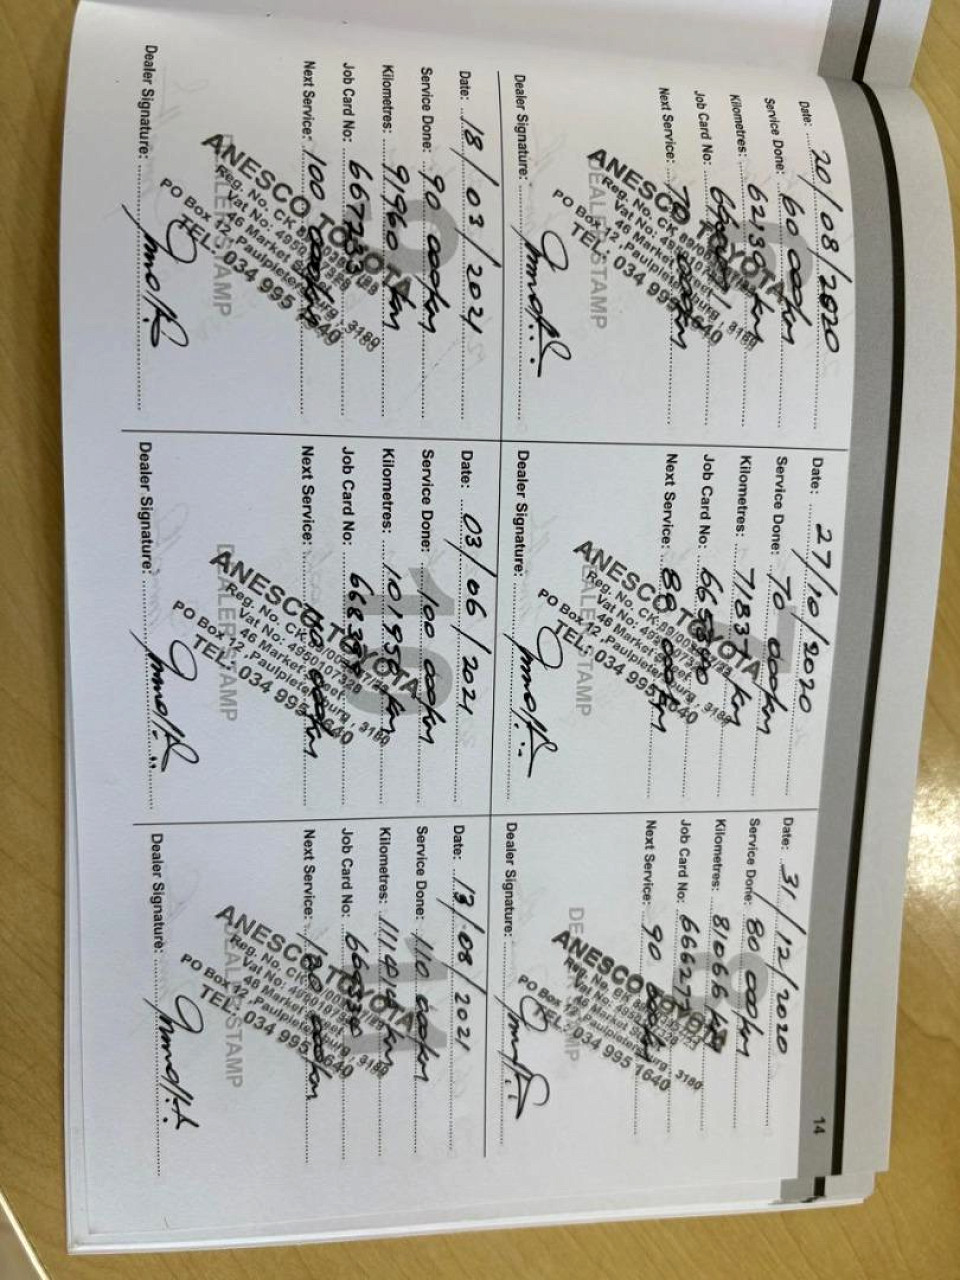 14
Date: 20/08/2020
Service Done: 60 000km
Kilometres: 62139km
Job Card No:
Next Service: 70 000km
6
DEALER STAMP
ANESCO TOYOTA
46 Market Street
PO Box 12, Paulpietersburg, 3180
TEL: 034 995 1640
Dealer Signature:
Date: 27/10/2020
Service Done: 70 000km
Kilometres: 71837km
Job Card No:
Next Service: 80 000km
7
DEALER STAMP
ANESCO TOYOTA
46 Market Street
PO Box 12, Paulpietersburg, 3180
TEL: 034 995 1640
Dealer Signature:
Date: 31/12/2020
Service Done: 80 000km
Kilometres: 81066km
Job Card No:
Next Service: 90 000km
8
DEALER STAMP
ANESCO TOYOTA
46 Market Street
PO Box 12, Paulpietersburg, 3180
TEL: 034 995 1640
Dealer Signature:
Date: 18/03/2021
Service Done: 90 000km
Kilometres: 91960km
Job Card No:
Next Service: 100 000km
9
DEALER STAMP
ANESCO TOYOTA
46 Market Street
PO Box 12, Paulpietersburg, 3180
TEL: 034 995 1640
Dealer Signature:
Date: 03/06/2021
Service Done: 100 000km
Kilometres: 101950km
Job Card No:
Next Service:
10
DEALER STAMP
ANESCO TOYOTA
46 Market Street
PO Box 12, Paulpietersburg, 3180
TEL: 034 995 1640
Dealer Signature:
Date: 13/08/2021
Service Done: 110 000km
Kilometres:
Job Card No:
Next Service: 120 000km
11
DEALER STAMP
ANESCO TOYOTA
46 Market Street
PO Box 12, Paulpietersburg, 3180
TEL: 034 995 1640
Dealer Signature: